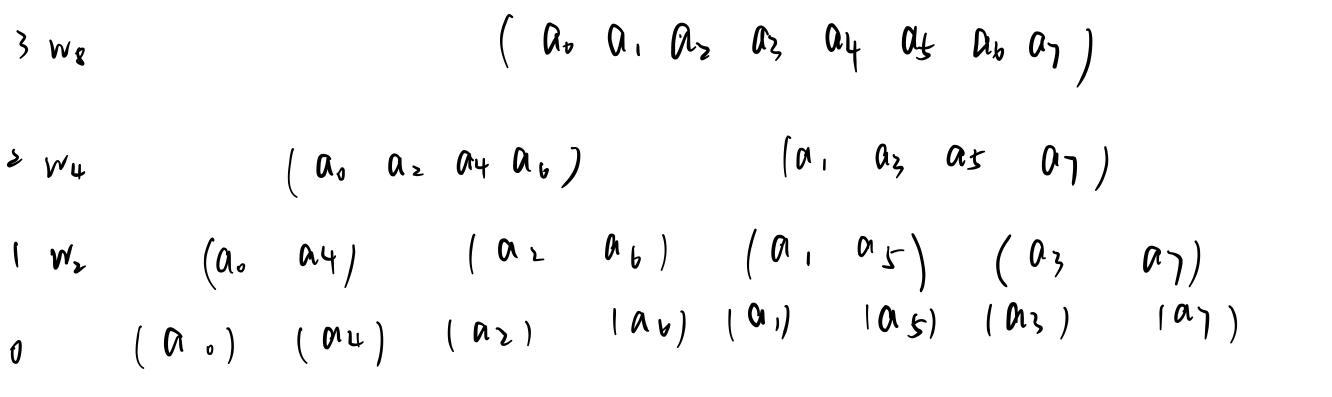 3 w₈ ( a₀ a₁ a₂ a₃ a₄ a₅ a₆ a₇ )
2 w₄ ( a₀ a₂ a₄ a₆ ) ( a₁ a₃ a₅ a₇ )
1 w₂ ( a₀ a₄ ) ( a₂ a₆ ) ( a₁ a₅ ) ( a₃ a₇ )
0 ( a₀ ) ( a₄ ) ( a₂ ) ( a₆ ) ( a₁ ) ( a₅ ) ( a₃ ) ( a₇ )